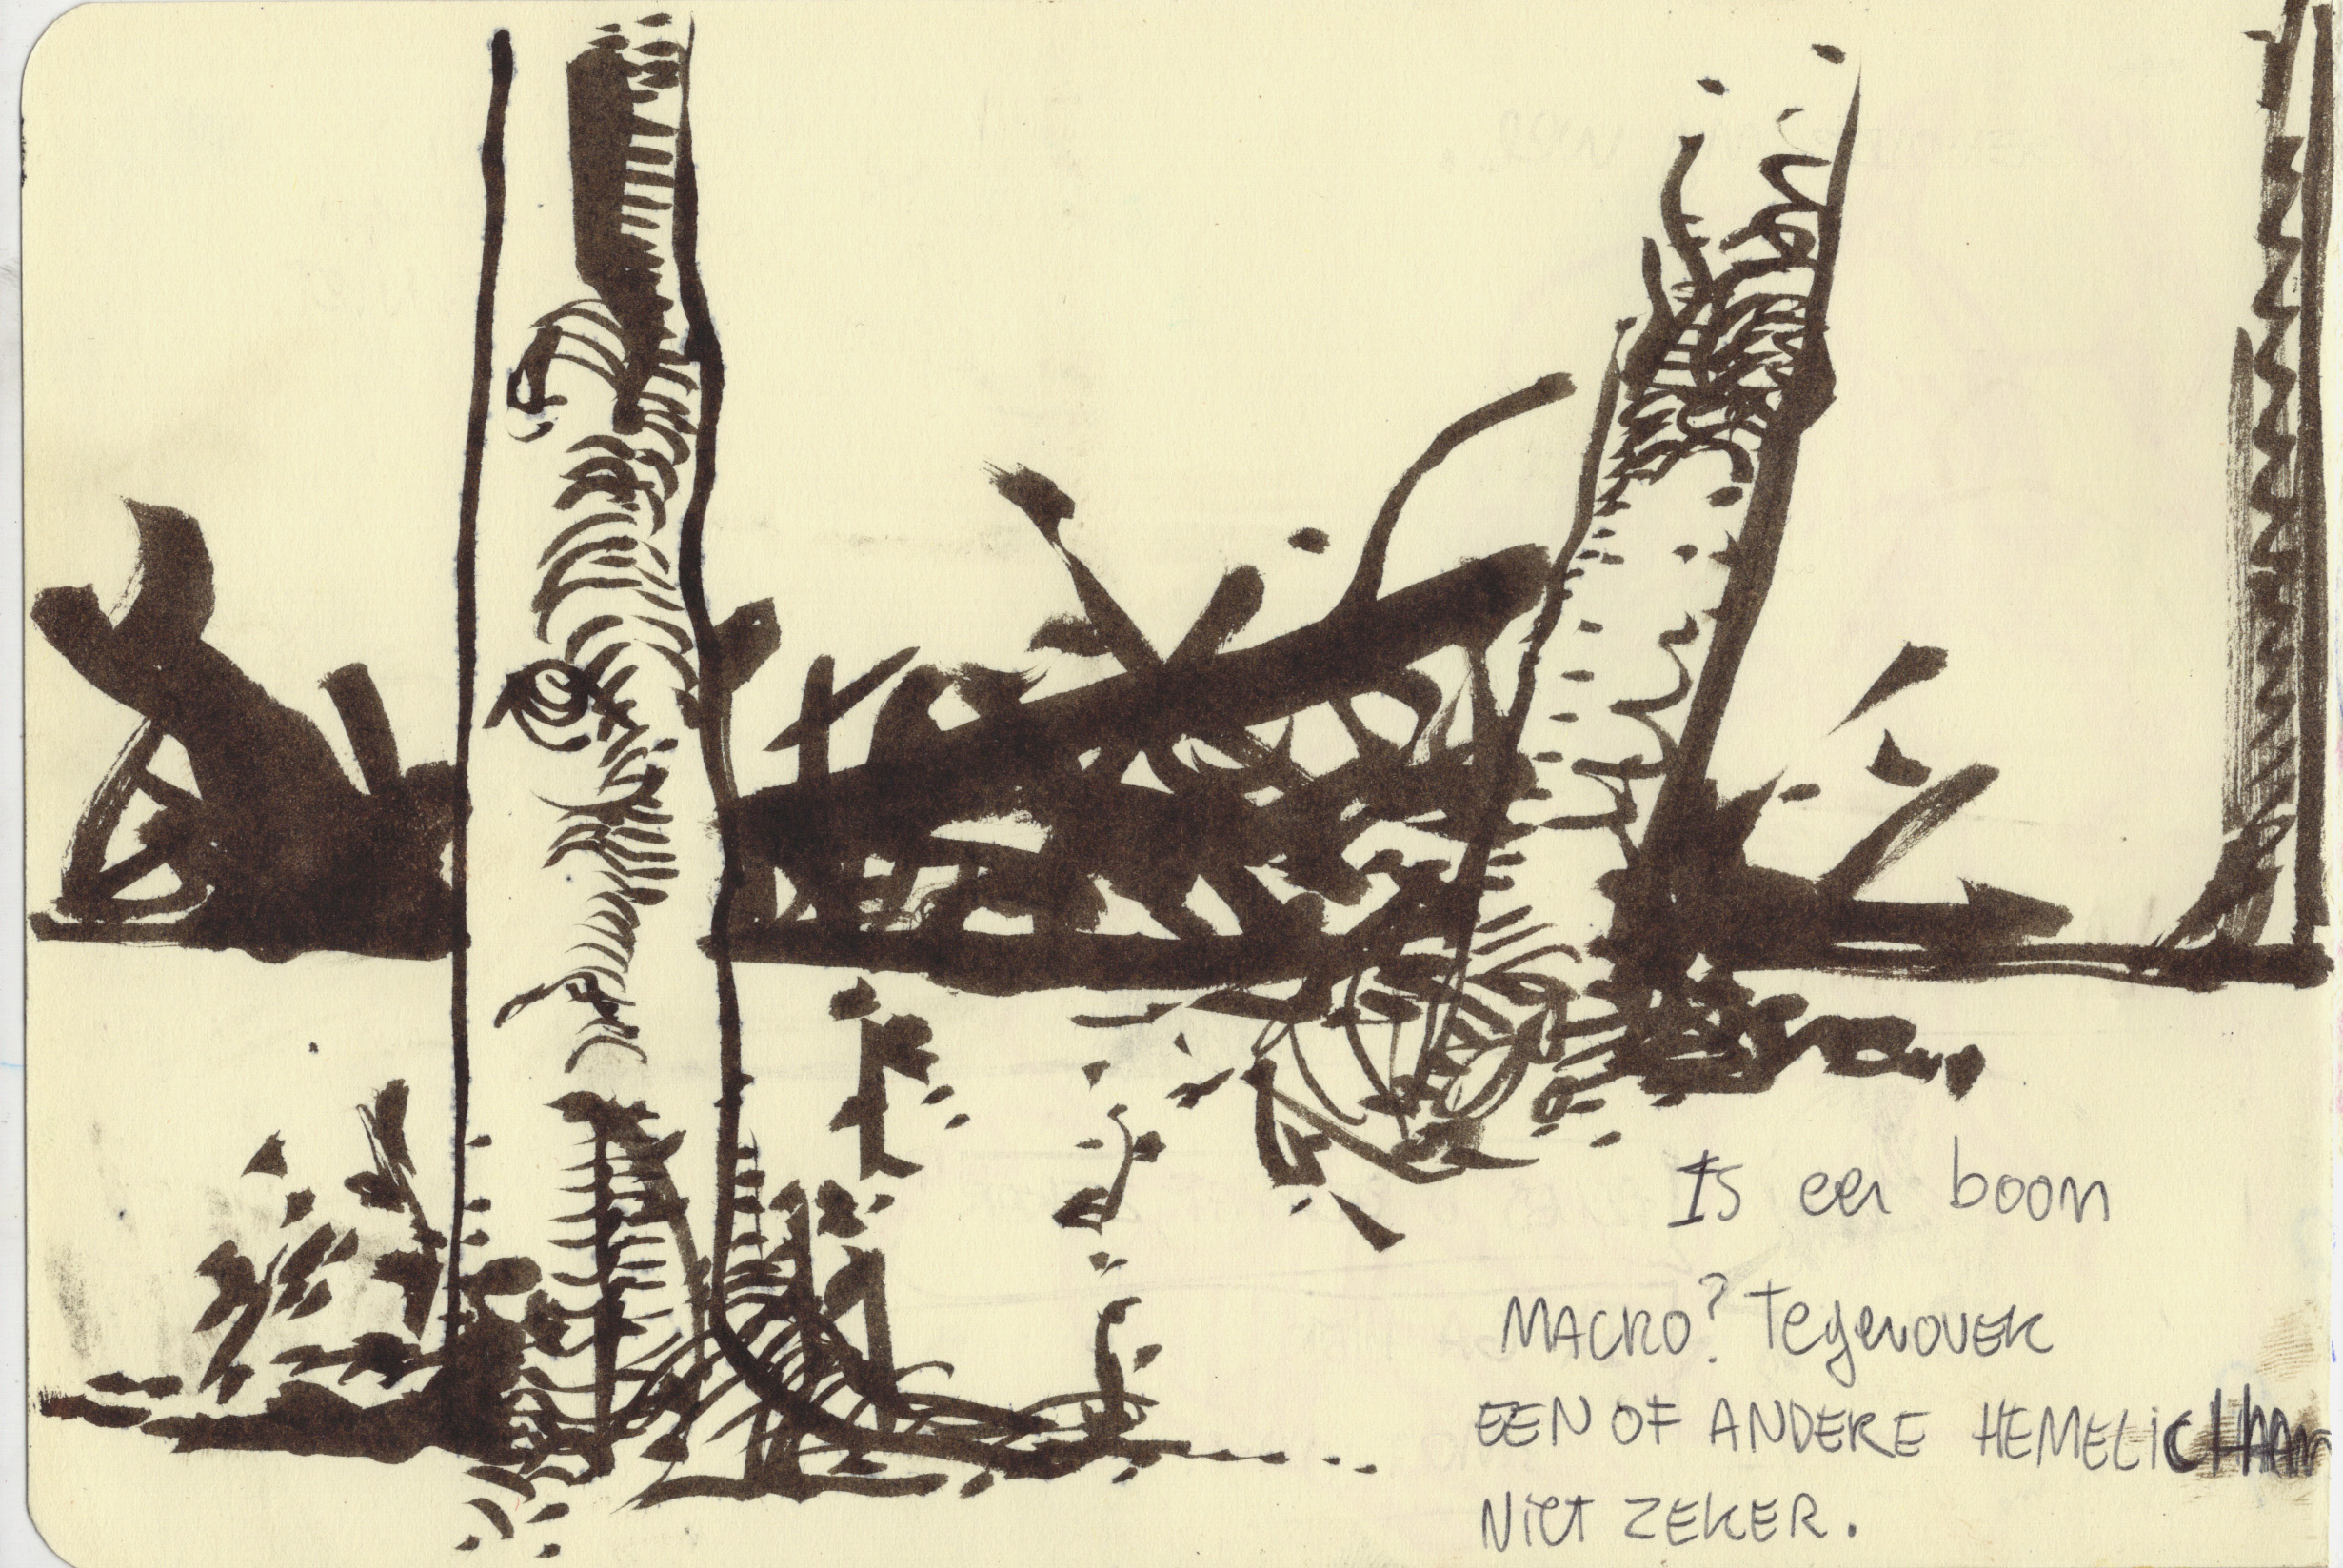 Is een boom
MACRO? Tegenover
EEN OF ANDERE HEMELICHAAM
NIET ZEKER.